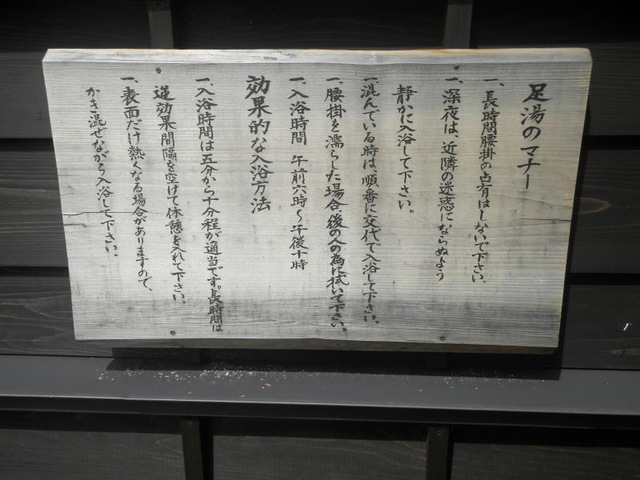 足湯のマナー
一、長時間腰掛の占有はしないで下さい。
一、深夜は、近隣の迷惑にならぬよう
静かに入浴して下さい。
一、混んでいる時は、順番に交代で入浴して下さい。
一、腰掛を濡らした場合後の人の為に拭いて下さい。
一、入浴時間　午前六時～午後十時
効果的な入浴方法
一、入浴時間は五分から十分程が適当です。長時間は
逆効果間隔を空けて休憩を入れて下さい。
一、表面だけ熱くなる場合がありますので、
かき混ぜながら入浴して下さい。